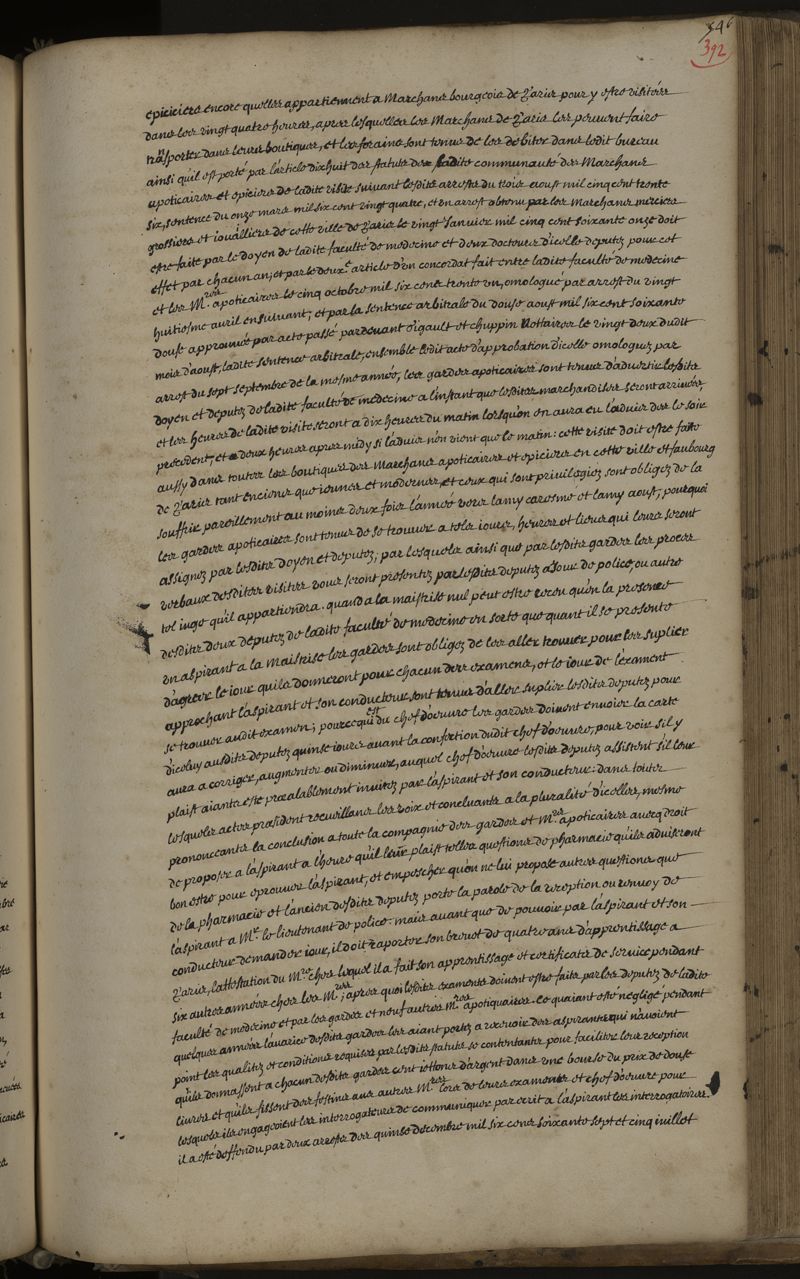 546
392
epiciers encore quelles appartiennent a Marchans bourgeois de Paris pour y estre visitées
dans les vingt quatre heures, apres lesquelles les Marchans de Paris les peuvent faire
transporter dans leurs boutiques, et les forains sont tenus de les debiter dans ledit bureau
ainsi qu'il est porté par l'article dixhuit des statuts de ladite communauté des Marchans
apoticaires et epiciers de ladite visite suivant lesdits arrests du trois aoust mil cinq cent trente
six, sentence du onze mars mil six cent vingt quatre, et en arrest obtenu par les Marchans merciers
grossiers et iouailliers de cette ville de Paris le vingt Janvier mil cinq cent soixante onze doit
estre faite par le doyen de ladite faculté de medecine et deux docteurs d'icelle deputez pour cet
effet par chacun an; et par le deuxe article d'un concordat fait entre ladite faculté de medecine
et les Mres apoticaires le cinq octobre mil six cent trente un, omologué par arrest du vingt
huitiesme avril ensuivant; et par la sentence arbitrale du douse aoust mil six cent soixante
douse approuvée par acte passé pardevant oigault et chuppin Nottaires le vingt deux dudit
mois d'aoust, ladite sentence arbitrale, ensemble ledit acte d'approbation d'icelle omologuez par
arrest du sept septembre de la mesme année, les gardes apoticaires sont tenus d'advertir lesdits
doyen et deputez de ladite faculté de medecine a l'instant que lesdites marchandises seront arrivées,
et les heures de ladite visite seront a dix heures du matin lorsqu'on en aura eu l'advis des le soir
precedent, et a deux heures apres midy si l'advis n'en vient que le matin: cette visite doit estre faite
aussy dans toutes les boutiques des Marchans apoticaires et epiciers en cette ville et faubourg
de Paris tant enciens que ieunes et modernes, et ceux qui sont privilegiez sont obligez de la
souffrir pareillement au moins deux fois l'année vers lamy caresme et lamy aoust, pourquoi
les gardes apoticaires sont tenus de se trouver a tels iours, heures et lieux qui leurs seront
assignez par lesdits doyen et deputez, par lesquels ainsi que par lesdits gardes les procez
verbaux desdites visites vous seront presentez par lesdits deputez a Joue de police, ou autre
tel iuge qu'il appartiendra. quand a la maistrise nul peut estre receu qu'en la presence
desdits deux deputez de ladite faculté de medecine en sorte que quant il se presente
un aspirant a la Maistrise les gardes sont obligez de les aller trouver pour les suplier
d'agreer le iour quils donneront pour chacun des examens, et le iour de l'examen
approchant l'aspirant et son conducteur sont tenus d'aller suplier lesdits deputez pour
se trouver audit examen; pour ce qui est du chef d'œuvre les gardes doivent envoier la carte
d'icelui ausdits deputez quinse iours avant la confection dudit chef d'œuvre, pour voir s'il y
aura a corriger, augmenter ou diminuer, auquel chef d'œuvre lesdits deputez assistent s'il leur
plaist aiants esté prealablement invitez par l'aspirant et son conducteur: dans toutes
lesquels actes president recueillans les voix et concluants a la pluralité d'icelles, mesme
prononceants la conclusion a toute la compagnie des gardes et Mres apoticaires avecq droit
de proposer a l'aspirant a l'heure qu'il leur plaist telles questions de pharmacie quils adviseront
bon estre pour eprouver l'aspirant, et empescher qu'on ne lui propose autres questions que
de la pharmacie et l'ancien desdits deputez porte la parole de la reception ou renvoy de
l'aspirant a Mr le lieutenant de police. mais avant que de pouvoir par l'aspirant et son
conducteur demander iour, il doit raporter son brevet de quatre ans d'apprentissage a
Paris, l'attestation du Mre chez lequel il a fait son apprentissage et certificats de service pendant
six autres années chez les Mres; apres quoi lesdits examens doivent estre faits par les deputez de ladite
faculté de medecine et par les gardes et neuf autres Mres apotiquaires. Ce quaiant esté negligé pendant
quelques années l'avarice desdits gardes les aiant portez a recevoir des aspirants qui n'avoient
point les qualitez et conditions requises par lesdits statuts se contentants pour faciliter leur reception
qu'ils donnassent a chacun desdits gardes cent iettons d'argent dans une bourse du prix de douse
livres et quils fissent des festins aux autres Mres lors de leurs examens et chef d'œuvre pour
lesquels ils engageoient les interrogateurs de communiquer par ecrit a l'aspirant les interrogatoires.
il a esté deffendu par deux arrests des quinse decembre mil six cens soixante sept et cinq iuillet